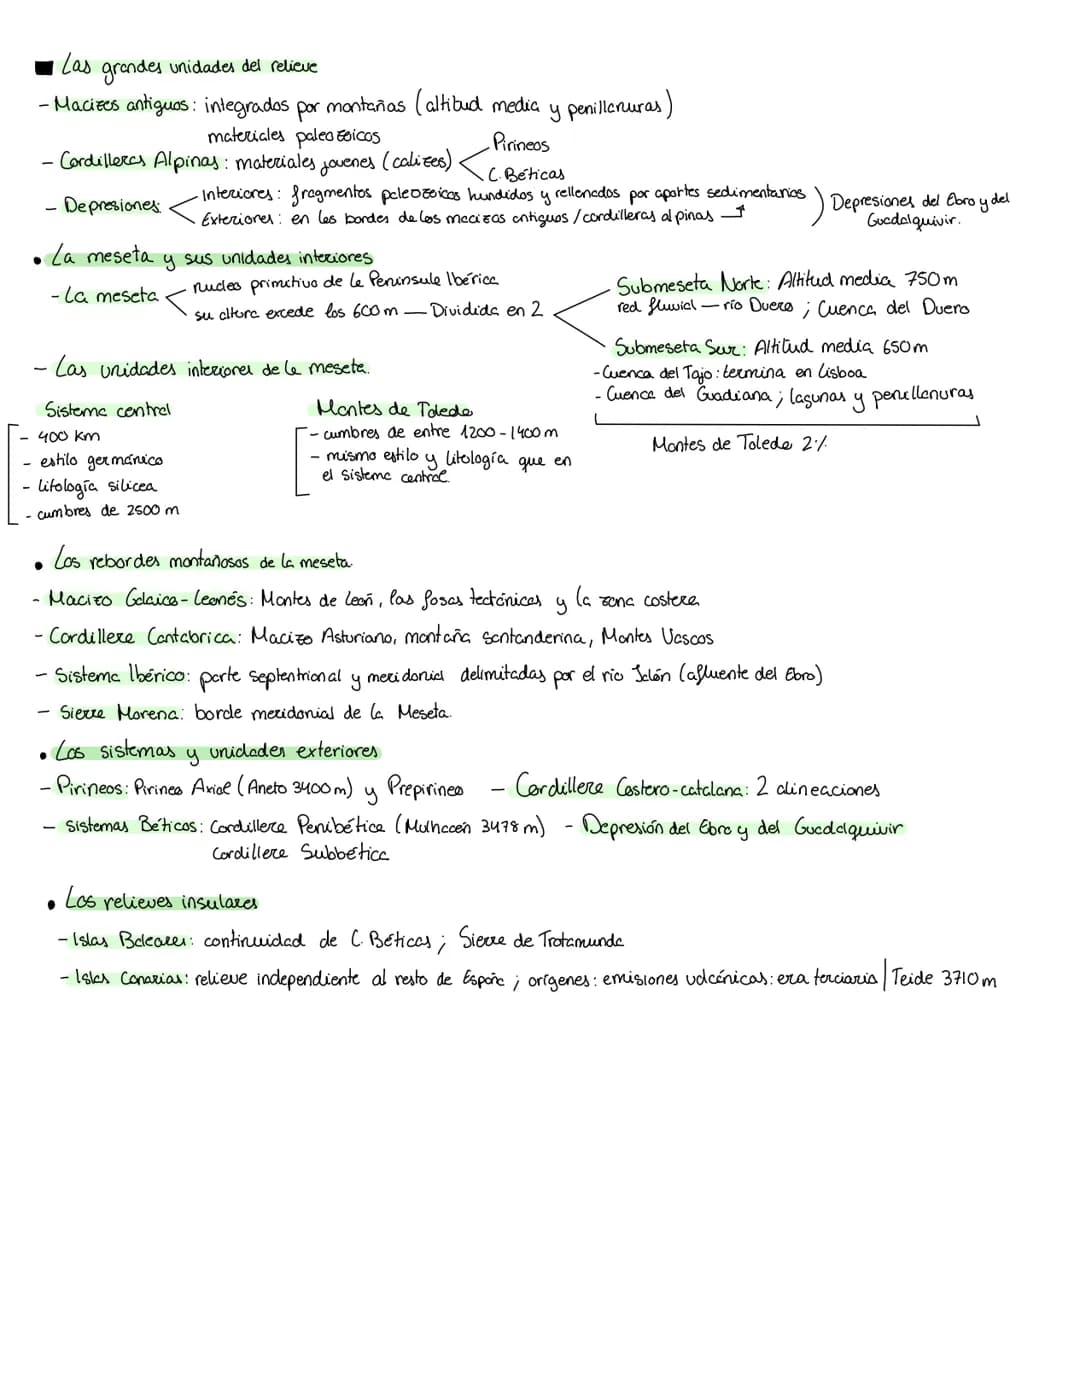 Las grandes unidades del relieve
- Macizos antiguos: integrados por montañas (altitud media y penillanuras)
materiales paleozoicos
- Cordilleras Alpinas: materiales jovenes (calizas)
Pirineos
C. Béticas
- Depresiones:
Interiores: fragmentos paleozoicos hundidos y rellenados por aportes sedimentarios
Exteriores: en los bordes de los macizos antiguos / cordilleras alpinas
Depresiones del Ebro y del
Guadalquivir.
• La meseta y sus unidades interiores
- La meseta
nucleo primitivo de la Península Ibérica
su altura excede los 600 m — Dividida en 2
Submeseta Norte: Altitud media 750 m
red fluvial — río Duero ; Cuenca del Duero
Submeseta Sur: Altitud media 650 m
- Cuenca del Tajo: termina en Lisboa
- Cuenca del Guadiana ; lagunas y penillanuras
Montes de Toledo 2%
- Las unidades interiores de la meseta.
Sistema central
- 400 km
- estilo germánico
- litología silícea
- cumbres de 2500 m
Montes de Toledo
- cumbres de entre 1200 - 1400 m
- mismo estilo y litología que en
el sistema central.
• Los rebordes montañosos de la meseta.
- Macizo Galaico - Leonés: Montes de León, las fosas tectónicas y la zona costera
- Cordillera Cantabrica: Macizo Asturiano, montaña santanderina, Montes Vascos
- Sistema Ibérico: parte septentrional y meridonial delimitadas por el rio Jalón (afluente del Ebro)
- Sierra Morena: borde meridonial de la Meseta.
• Los sistemas y unidades exteriores
- Pirineos: Pirineo Axial (Aneto 3400 m) y Prepirineo
- Cordillera Costero-catalana: 2 alineaciones
- Sistemas Béticos: Cordillera Penibética (Mulhacén 3478 m)
Cordillera Subbética
- Depresión del Ebro y del Guadalquivir
• Los relieves insulares
- Islas Baleares: continuidad de C. Béticas ; Sierra de Trotamunda
- Islas Canarias: relieve independiente al resto de España ; orígenes: emisiones volcánicas: era terciaria | Teide 3710 m